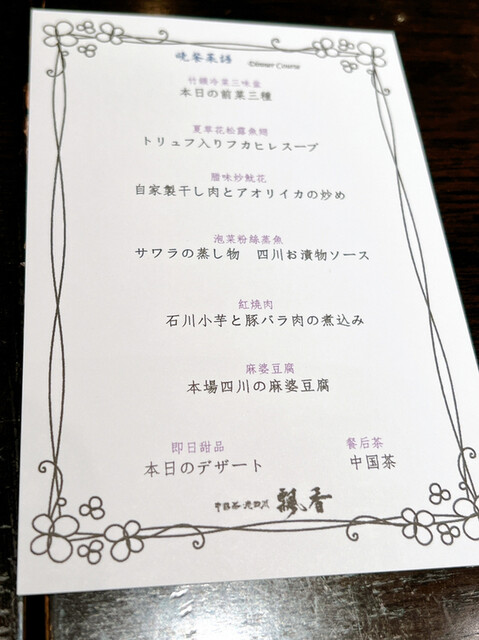 晩餐菜譜 Dinner Course
本日の前菜三種
トリュフ入りフカヒレスープ
臘味炒魷花
自家製干し肉とアオリイカの炒め
泡菜粉絲蒸魚
サワラの蒸し物 四川お漬物ソース
紅焼肉
石川小芋と豚バラ肉の煮込み
麻婆豆腐
本場四川の麻婆豆腐
即日甜品 餐后茶
本日のデザート 中国茶
飄香